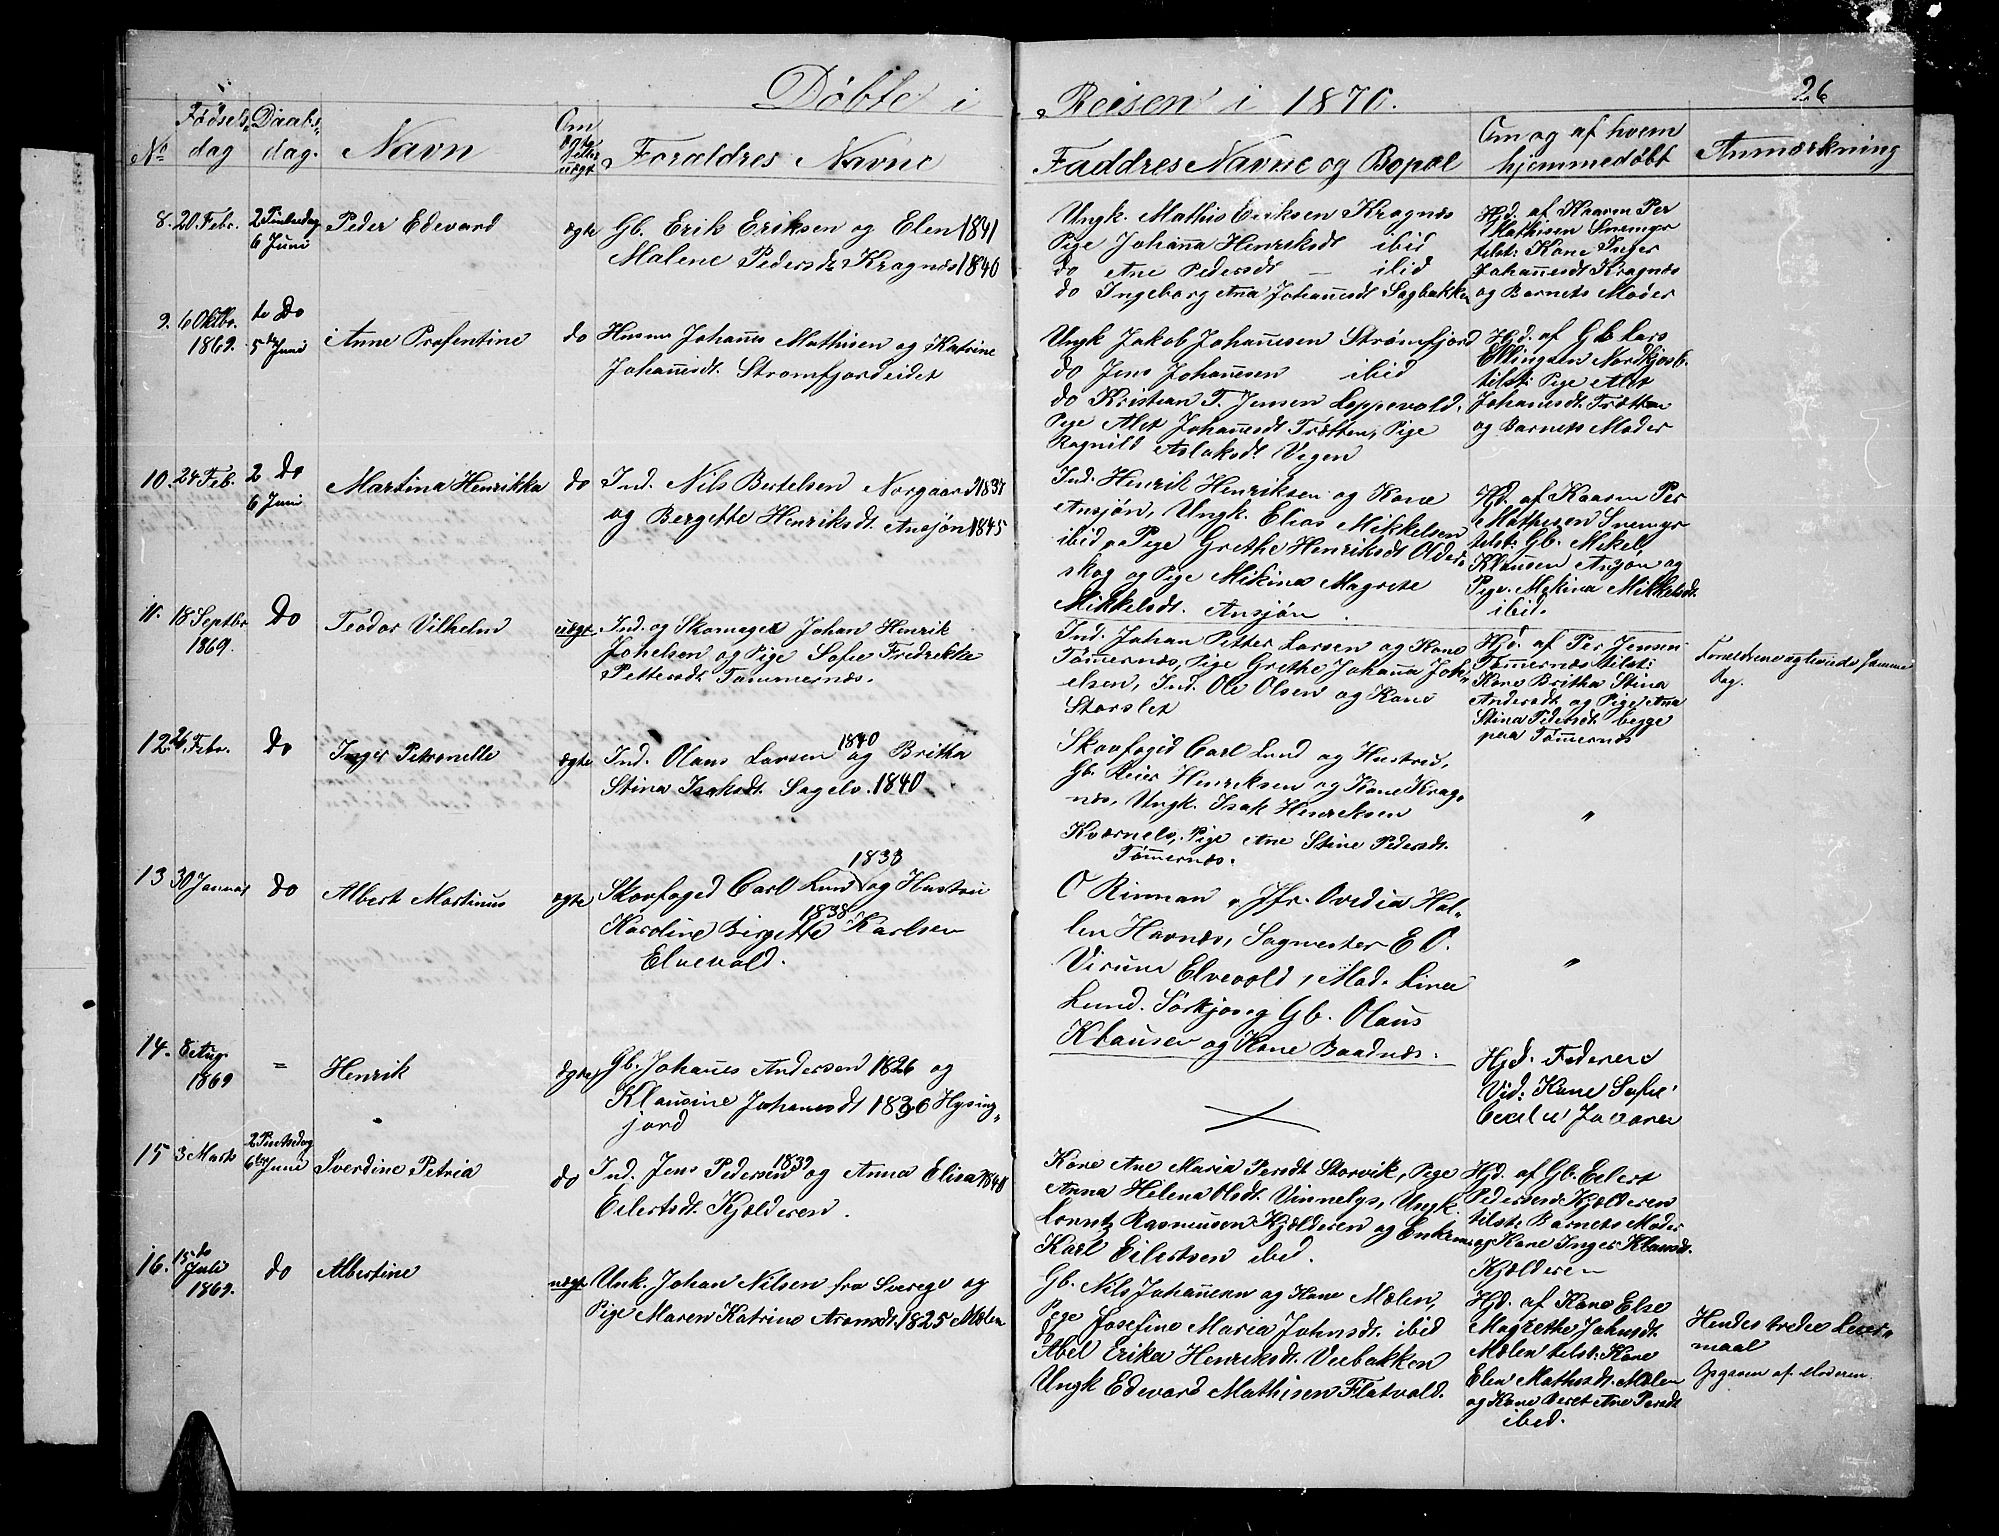 Døbte i Reisen i 1870.
26
No
Fødsels-
dag
Daabs-
dag.
Navn
Om
ægte
eller
uægt
Foraldres Navne
Faddres Navne og Bopæl
Om og af hvem
hjemmedøbt
Anmærkning
8. 20 Febr.
2 Pintsedag
6 Juni
Peder Edevard
ægte
Gb. Erik Eriksen og Elen 1841
Malene Pedersdt. Kragnæs 1840
Ungk. Mathis Eriksen Kragnæs
Pige Johanna Henriksdt ibid
do Ane Pedersdt — ibid
do Ingeborg Ana Johannesdt Sagbakken
Hjd. af Kaarm Per
Mathisen Snemyr
tilst: Kone Inger
Johannesdt Kragnæs
og Barnets Moder
9. 6 Oktbr.
1869.
Do
5 Juni
Anne Profentine
do
Husm Johannes Mathisen og Katrine
Johannesdt. Strømfjordeidet
Ungk Jakob Johannesen Strømfjord
do Jens Johannesen ibid
do Kristian T. Jensen Loppevold.
Pige Alet Johannesdt Trætten, Pige
Ragnild Aslaksdt. Vegen
Hjd. af Gb Lars
Ellingsen Nordkjosb.
tilst: Pige Alet
Johannesdt. Trætten
og Barnets Moder
10. 24 Feb.
2 Do
6 Juni
Martina Henrikka
do
Ind. Nils Bertelsen Norgaard 1837
og Bergette Henriksdt. Ansjøn 1845
Ind. Henrik Henriksen og Kone
Ansjøn, Ungk. Elias Mikkelsen
ibid, Pige Grethe Henriksdt Older-
skog og Pige Mikina Magrete
Mikkelsdt. Ansjøn.
Hjd. af Kaarm Per
Mathisen Snemyr
tilst: Gb. Mikel
Klausen Ansjøn og
Pige Mekina Mikkelsdt.
ibid.
11. 18 Septbr
1869.
Do
Teodor Vilhelm
uægt.
Ind. og Skomager Johan Henrik
Johelsen og Pige Sofie Fredrekke
Pettersdt Tømmernæs.
Ind. Johan Petter Larsen og Kone
Tømernæs, Pige Grethe Johanna Joh-
elsen, Ind. Ole Olsen og Kone
Storslet
Hjd. af Per Jensen
Tømernæs tilst:
Kone Britha Stina
Andersdt og Pige Ana
Stina Pedersdt begge
paa Tømernæs
Foraldrene ægteviede samme
Dag.
12. 26 Febr.
do
Inger Petronelle
ægte
Ind. Olaus Larsen 1840 og Britha
Stina Isaksdt. Sagelv. 1840
Skovfoged Carl Lund og Hustru,
Gb. Reier Henriksen og Kone Krag-
næs, Ungk. Isak Henriksen
Kværnelv, Pige Ane Stine Pedersdt.
Tømernæs.
"
13 30 Januar
do
Albert Martinus
ægte
Skovfoged Carl Lund 1833 og Hustru
Karoline Birgette 1838 Karlsen
Elvevold.
O Rinman, Jfr. Ovedia Hal-
len Havnæs, Sagmester E O.
Virum Elvevold, Mad. Lina
Lund. Sørkjosen, Gb. Olaus
Klausen og Kone Baadnæs.
"
14. 8 Aug.
1869
=
Henrik
ægte
Gb. Johannes Andersen 1826 og
Klausine Johannesdt 1830 Hysing-
jord
Hjd. Faderen
Vid: Kone Sofie
15 3 Marts
2 Pintsedag
6 Juni
Sverdine Petria
do
Ind. Jens Pedersen 1839 og Anna Elisa 1840
Eilertsdt. Kjælderen.
Kone Ane Maria Persdt Storvik, Pige
Anna Helena Olsdt. Vinnelys, Ungk.
Lorentz Rasmusen Kjælderen og Enkem
Karl Eilertsen ibid.
Hjd. af Gb. Eilert
Pedersen Kjælderen
tilst: Barnets Moder
og Kone Inger Klausdt.
Kjælderen
16. 15 do
Juli
1869.
do
Albertine
uægt
Unk. Johan Nilsen fra Sverege og
Pige Maren Katrine Aronsdt. 1825 Mælen
Gb. Nils Johannesen og Kone Mælen,
Pige Josefine Maria Johnsdt. ibid
do Abel Erika Henriksdt. Veebakken
Ungk Edevard Mathisen Flatvold.
Hjd. af Kone Else
Magrethe Johnsdt.
Mælen tilst: Kone
Elen Mathisdt. Mælen
og Kone Beret Ane Persdt
ibid.
Hendes tredie Leier-
maal
Opgaven af Moderen